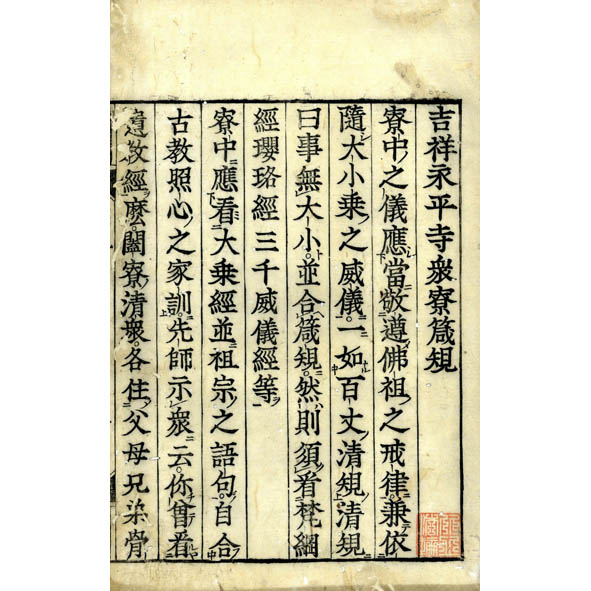 吉祥永平寺衆寮箴規
寮中之儀應當敬遵佛祖之戒律。兼依
隨大小乘之威儀。一如百丈清規清規
曰事無大小。並合箴規。然則須看梵網
經瓔珞經三千威儀經等
寮中應看大乘經並祖宗之語句。自合
古教照心之家訓。先師示衆云。你曾看
遺教經麼。闔寮清衆。各住父母兄弟骨